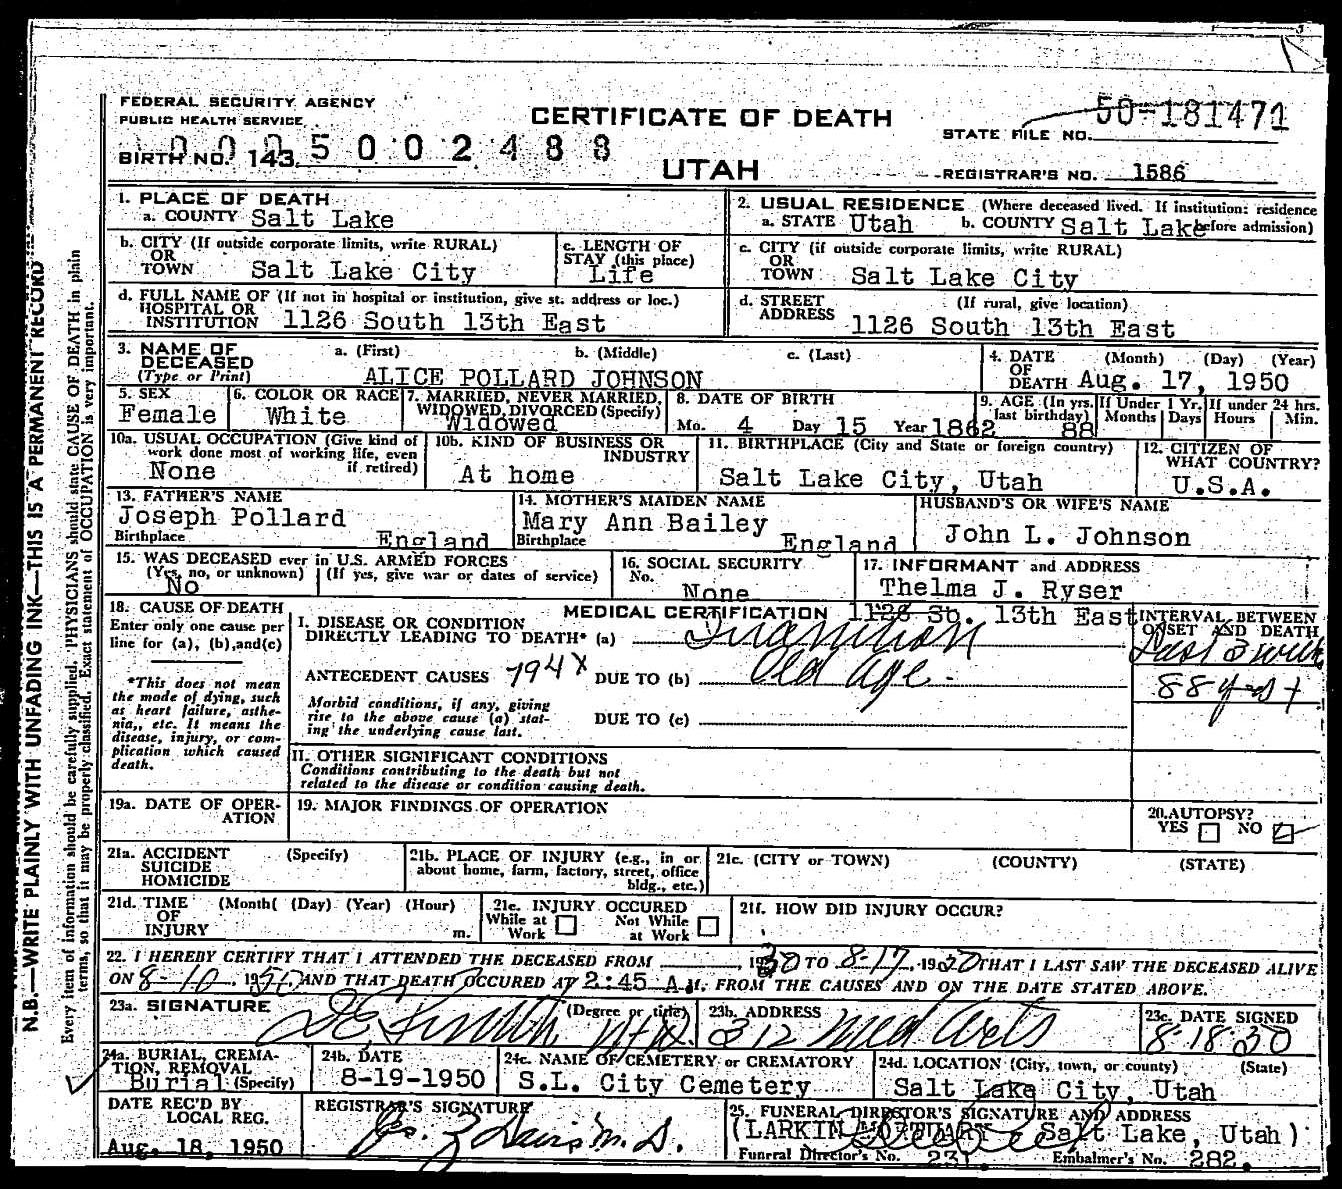 FEDERAL SECURITY AGENCY
PUBLIC HEALTH SERVICE
CERTIFICATE OF DEATH
STATE FILE NO. 50-181471
0005002488
BIRTH NO. 143
UTAH
REGISTRAR'S NO. 1586
1. PLACE OF DEATH
a. COUNTY Salt Lake
2. USUAL RESIDENCE (Where deceased lived. If institution: residence before admission)
a. STATE Utah b. COUNTY Salt Lake
b. CITY (If outside corporate limits, write RURAL)
OR
TOWN Salt Lake City
c. LENGTH OF
STAY (this place)
Life
c. CITY (if outside corporate limits, write RURAL)
OR
TOWN Salt Lake City
d. FULL NAME OF (If not in hospital or institution, give st. address or loc.)
HOSPITAL OR
INSTITUTION 1126 South 13th East
d. STREET (If rural, give location)
ADDRESS
1126 South 13th East
3. NAME OF a. (First) b. (Middle) c. (Last)
DECEASED
(Type or Print) ALICE POLLARD JOHNSON
4. DATE (Month) (Day) (Year)
OF
DEATH Aug. 17, 1950
5. SEX
Female
6. COLOR OR RACE
White
7. MARRIED, NEVER MARRIED,
WIDOWED, DIVORCED (Specify)
Widowed
8. DATE OF BIRTH
Mo. 4 Day 15 Year 1862
9. AGE (In yrs. last birthday) 88
If Under 1 Yr. Months Days
If under 24 hrs. Hours Min.
10a. USUAL OCCUPATION (Give kind of
work done most of working life, even
if retired)
None
10b. KIND OF BUSINESS OR
INDUSTRY
At home
11. BIRTHPLACE (City and State or foreign country)
Salt Lake City, Utah
12. CITIZEN OF
WHAT COUNTRY?
U.S.A.
13. FATHER'S NAME
Joseph Pollard
Birthplace England
14. MOTHER'S MAIDEN NAME
Mary Ann Bailey
Birthplace England
HUSBAND'S OR WIFE'S NAME
John L. Johnson
15. WAS DECEASED ever in U.S. ARMED FORCES
(Yes, no, or unknown) (If yes, give war or dates of service)
No
16. SOCIAL SECURITY
No.
None
17. INFORMANT and ADDRESS
Thelma J. Ryser
1126 So. 13th East
18. CAUSE OF DEATH
Enter only one cause per
line for (a), (b), and (c)
*This does not mean
the mode of dying, such
as heart failure, asthe-
nia,, etc. It means the
disease, injury, or com-
plication which caused
death.
MEDICAL CERTIFICATION
I. DISEASE OR CONDITION
DIRECTLY LEADING TO DEATH* (a) Inanition
ANTECEDENT CAUSES 794X DUE TO (b) Old Age.
Morbid conditions, if any, giving
rise to the above cause (a) stat-
ing the underlying cause last.
DUE TO (c)
INTERVAL BETWEEN
ONSET AND DEATH
Last 3 wks
88 yrs +
II. OTHER SIGNIFICANT CONDITIONS
Conditions contributing to the death but not
related to the disease or condition causing death.
19a. DATE OF OPER-
ATION
19. MAJOR FINDINGS OF OPERATION
20. AUTOPSY?
YES NO
21a. ACCIDENT (Specify)
SUICIDE
HOMICIDE
21b. PLACE OF INJURY (e.g., in or
about home, farm, factory, street, office
bldg., etc.)
21c. (CITY or TOWN) (COUNTY) (STATE)
21d. TIME (Month( (Day) (Year) (Hour)
OF
INJURY m.
21e. INJURY OCCURED
While at Work Not While at Work
21f. HOW DID INJURY OCCUR?
22. I HEREBY CERTIFY THAT I ATTENDED THE DECEASED FROM 1930 TO 8-17, 1950 THAT I LAST SAW THE DECEASED ALIVE
ON 8-10, 1950, AND THAT DEATH OCCURED AT 2:45 A.M. FROM THE CAUSES AND ON THE DATE STATED ABOVE.
23a. SIGNATURE (Degree or title)
Smith M.D.
23b. ADDRESS
312 Med Arts
23c. DATE SIGNED
8-18-50
24a. BURIAL, CREMA-
TION, REMOVAL
Burial (Specify)
24b. DATE
8-19-1950
24c. NAME OF CEMETERY or CREMATORY
S.L. City Cemetery
24d. LOCATION (City, town, or county) (State)
Salt Lake City, Utah
DATE REC'D BY
LOCAL REG.
Aug. 18, 1950
REGISTRAR'S SIGNATURE
Davis M.D.
25. FUNERAL DIRECTOR'S SIGNATURE AND ADDRESS
(LARKIN MORTUARY Salt Lake, Utah)
Funeral Director's No. 231. Embalmer's No. 282.
N.B.—WRITE PLAINLY WITH UNFADING INK—THIS IS A PERMANENT RECORD
Every item of information should be carefully supplied. PHYSICIANS should state CAUSE OF DEATH in plain
terms, so that it may be properly classified. Exact statement of OCCUPATION is very important.